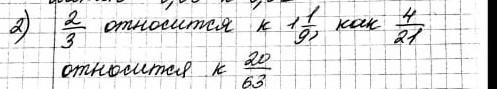 2) 2/3 относится к 1 1/9, как 4/21
относится к 20/63